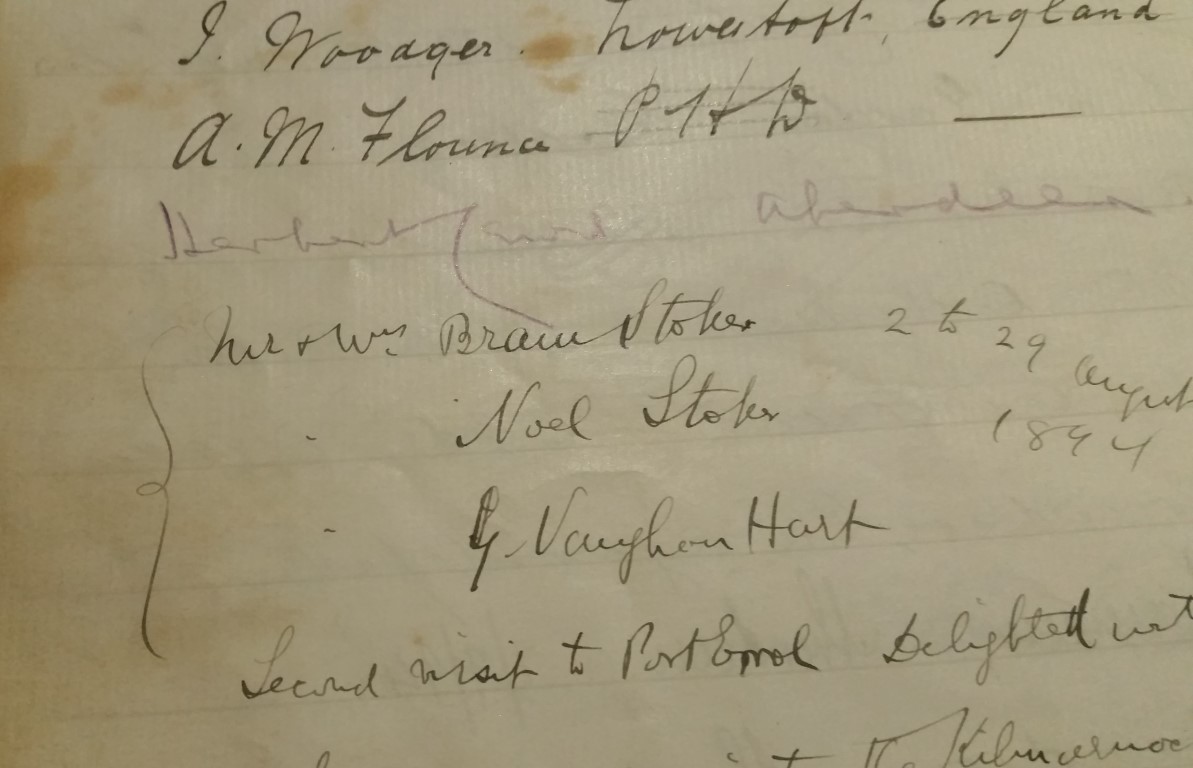 J. Woodger. Lowestoft, England
A. M. Florence P H D —
Herbert Aberdeen
Mr & Mrs Bram Stoker 2 to 29 August
" Noel Stoker 1894
" G. Vaughan Hart
Second visit to Port Errol Delighted
to Kilmarnoc